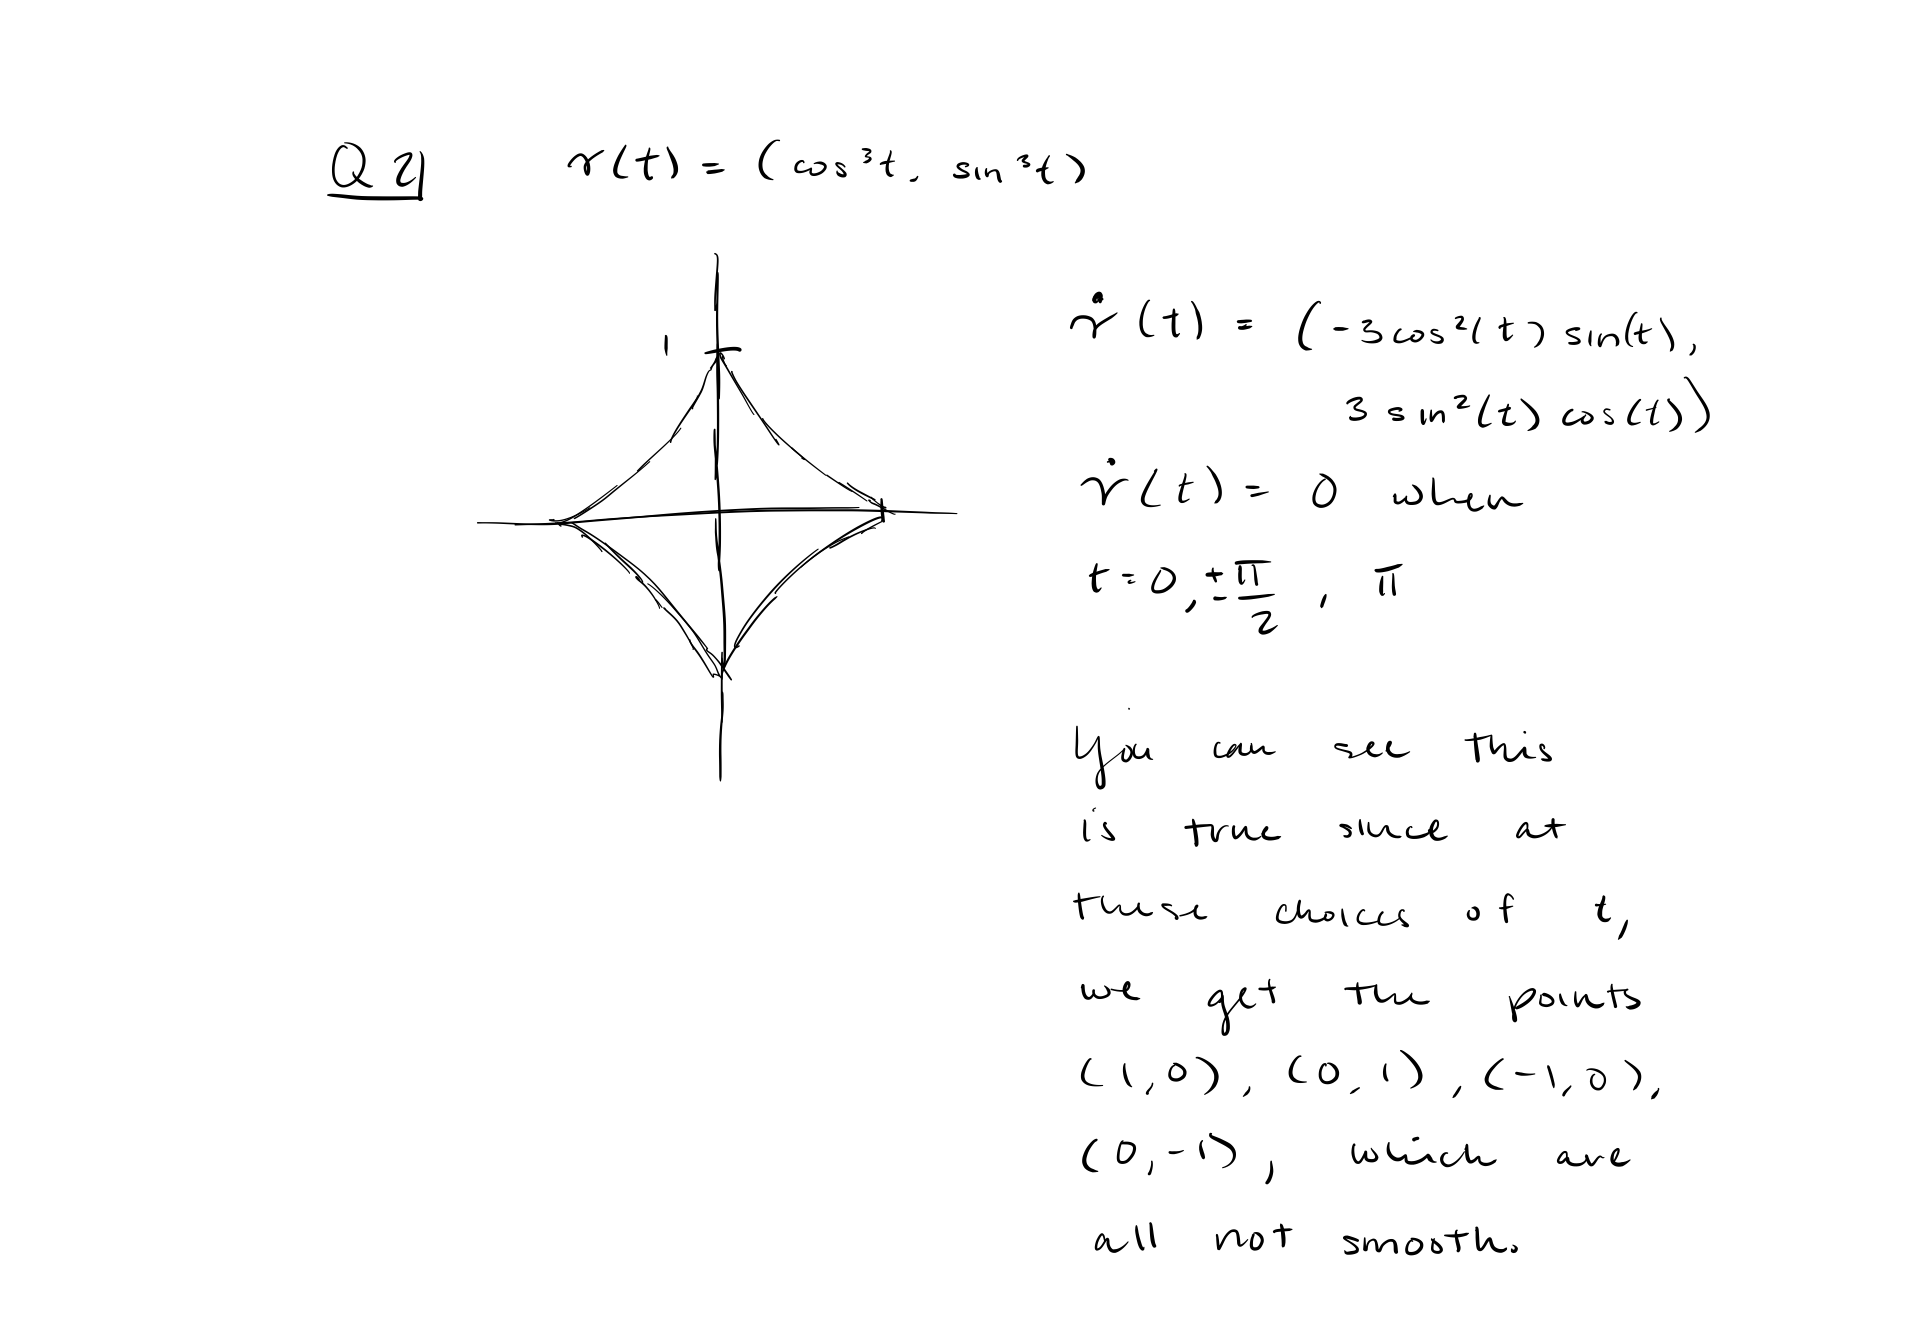 Q2
γ(t) = (cos³t, sin³t)
1
γ̇(t) = (-3cos²(t) sin(t),
3 sin²(t) cos(t))
γ̇(t) = 0 when
t = 0, ±π/2, π
You can see this
is true since at
these choices of t,
we get the points
(1,0), (0,1), (-1,0),
(0,-1), which are
all not smooth.